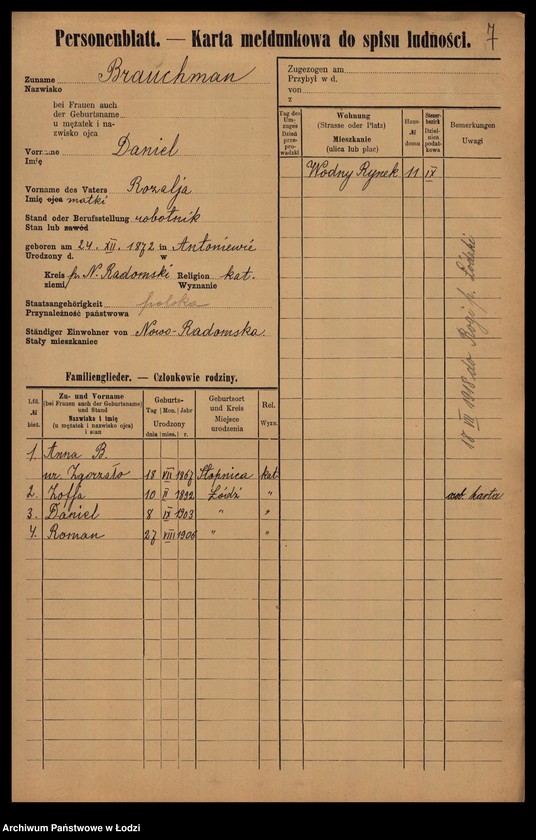 7
Personenblatt. — Karta meldunkowa do spisu ludności.
Zuname Brauchman
Nazwisko
bei Frauen auch
der Geburtsname
u mężatek i na-
zwisko ojca
Vorname Daniel
Imię
Vorname des Vaters Rozalja
Imię ojca matki
Stand oder Berufsstellung robotnik
Stan lub zawód
geboren am 24. XII. 1872 in Antoniewie
Urodzony d. w
Kreis p. N. Radomski Religion kat.
ziemi/ Wyznanie
Staatsangehörigkeit polska
Przynależność państwowa
Ständiger Einwohner von Nowo-Radomska.
Stały mieszkaniec
Zugezogen am
Przybył w d.
von
z
Tag des Um-zuges Dzień prze-pro-wadzki
Wohnung
(Strasse oder Platz)
Mieszkanie
(ulica lub plac)
Haus-
№
domu
Steuer-bezirk Dziel-nica podat-kowa
Bemerkungen
Uwagi
Wodny Rynek 11 IX
18 III 1918 do Rogi p. Łódzki
karta
Familienglieder. — Członkowie rodziny.
Lfd.
№
bież.
Zu- und Vorname
(bei Frauen auch der Geburtsname)
und Stand
Nazwisko i imię
(u mężatek i nazwisko ojca)
i stan
Geburts-
Tag Mon. Jahr
Urodzony
dnia mies. r.
Geburtsort
und Kreis
Miejsce
urodzenia
Rel.
Wyzn.
1. Anna B.
ur. Zgorzało 18 VII 1867 Stopnica kat.
2. Zofja 10 II 1892 Łódź "
3. Daniel 8 IX 1903 " "
4. Roman 27 VIII 1906 " "
Archiwum Państwowe w Łodzi